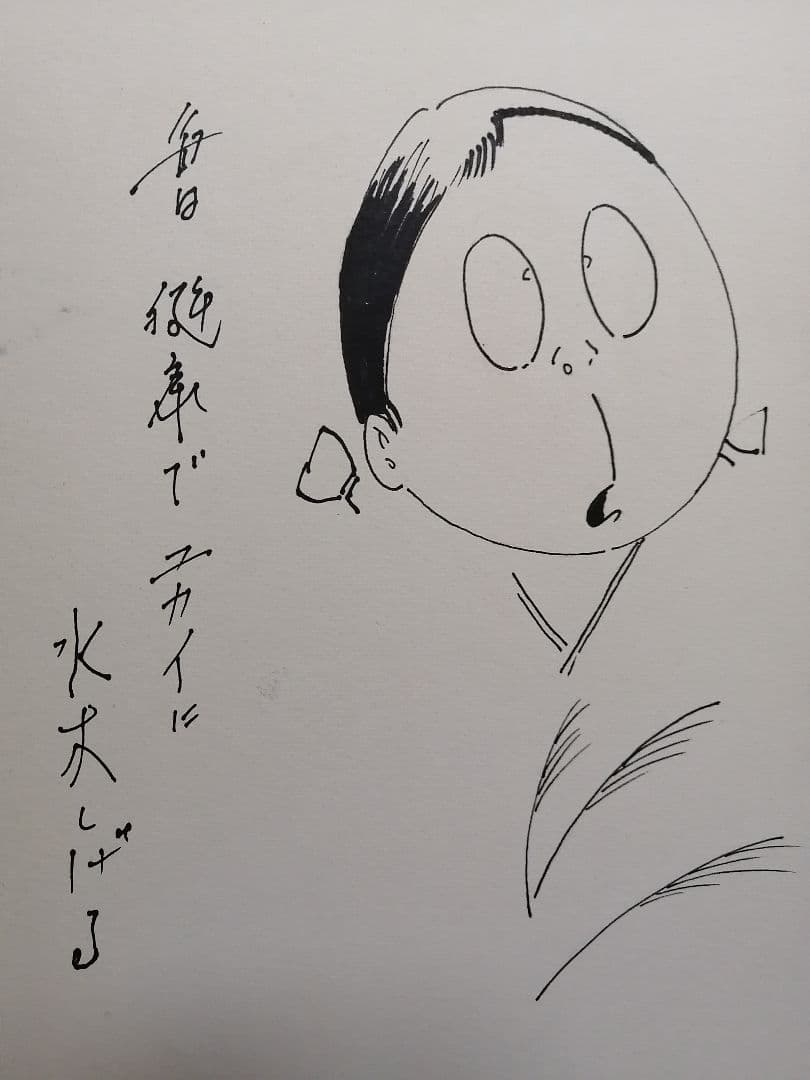 毎日
健康で
ユカイに
水木しげる